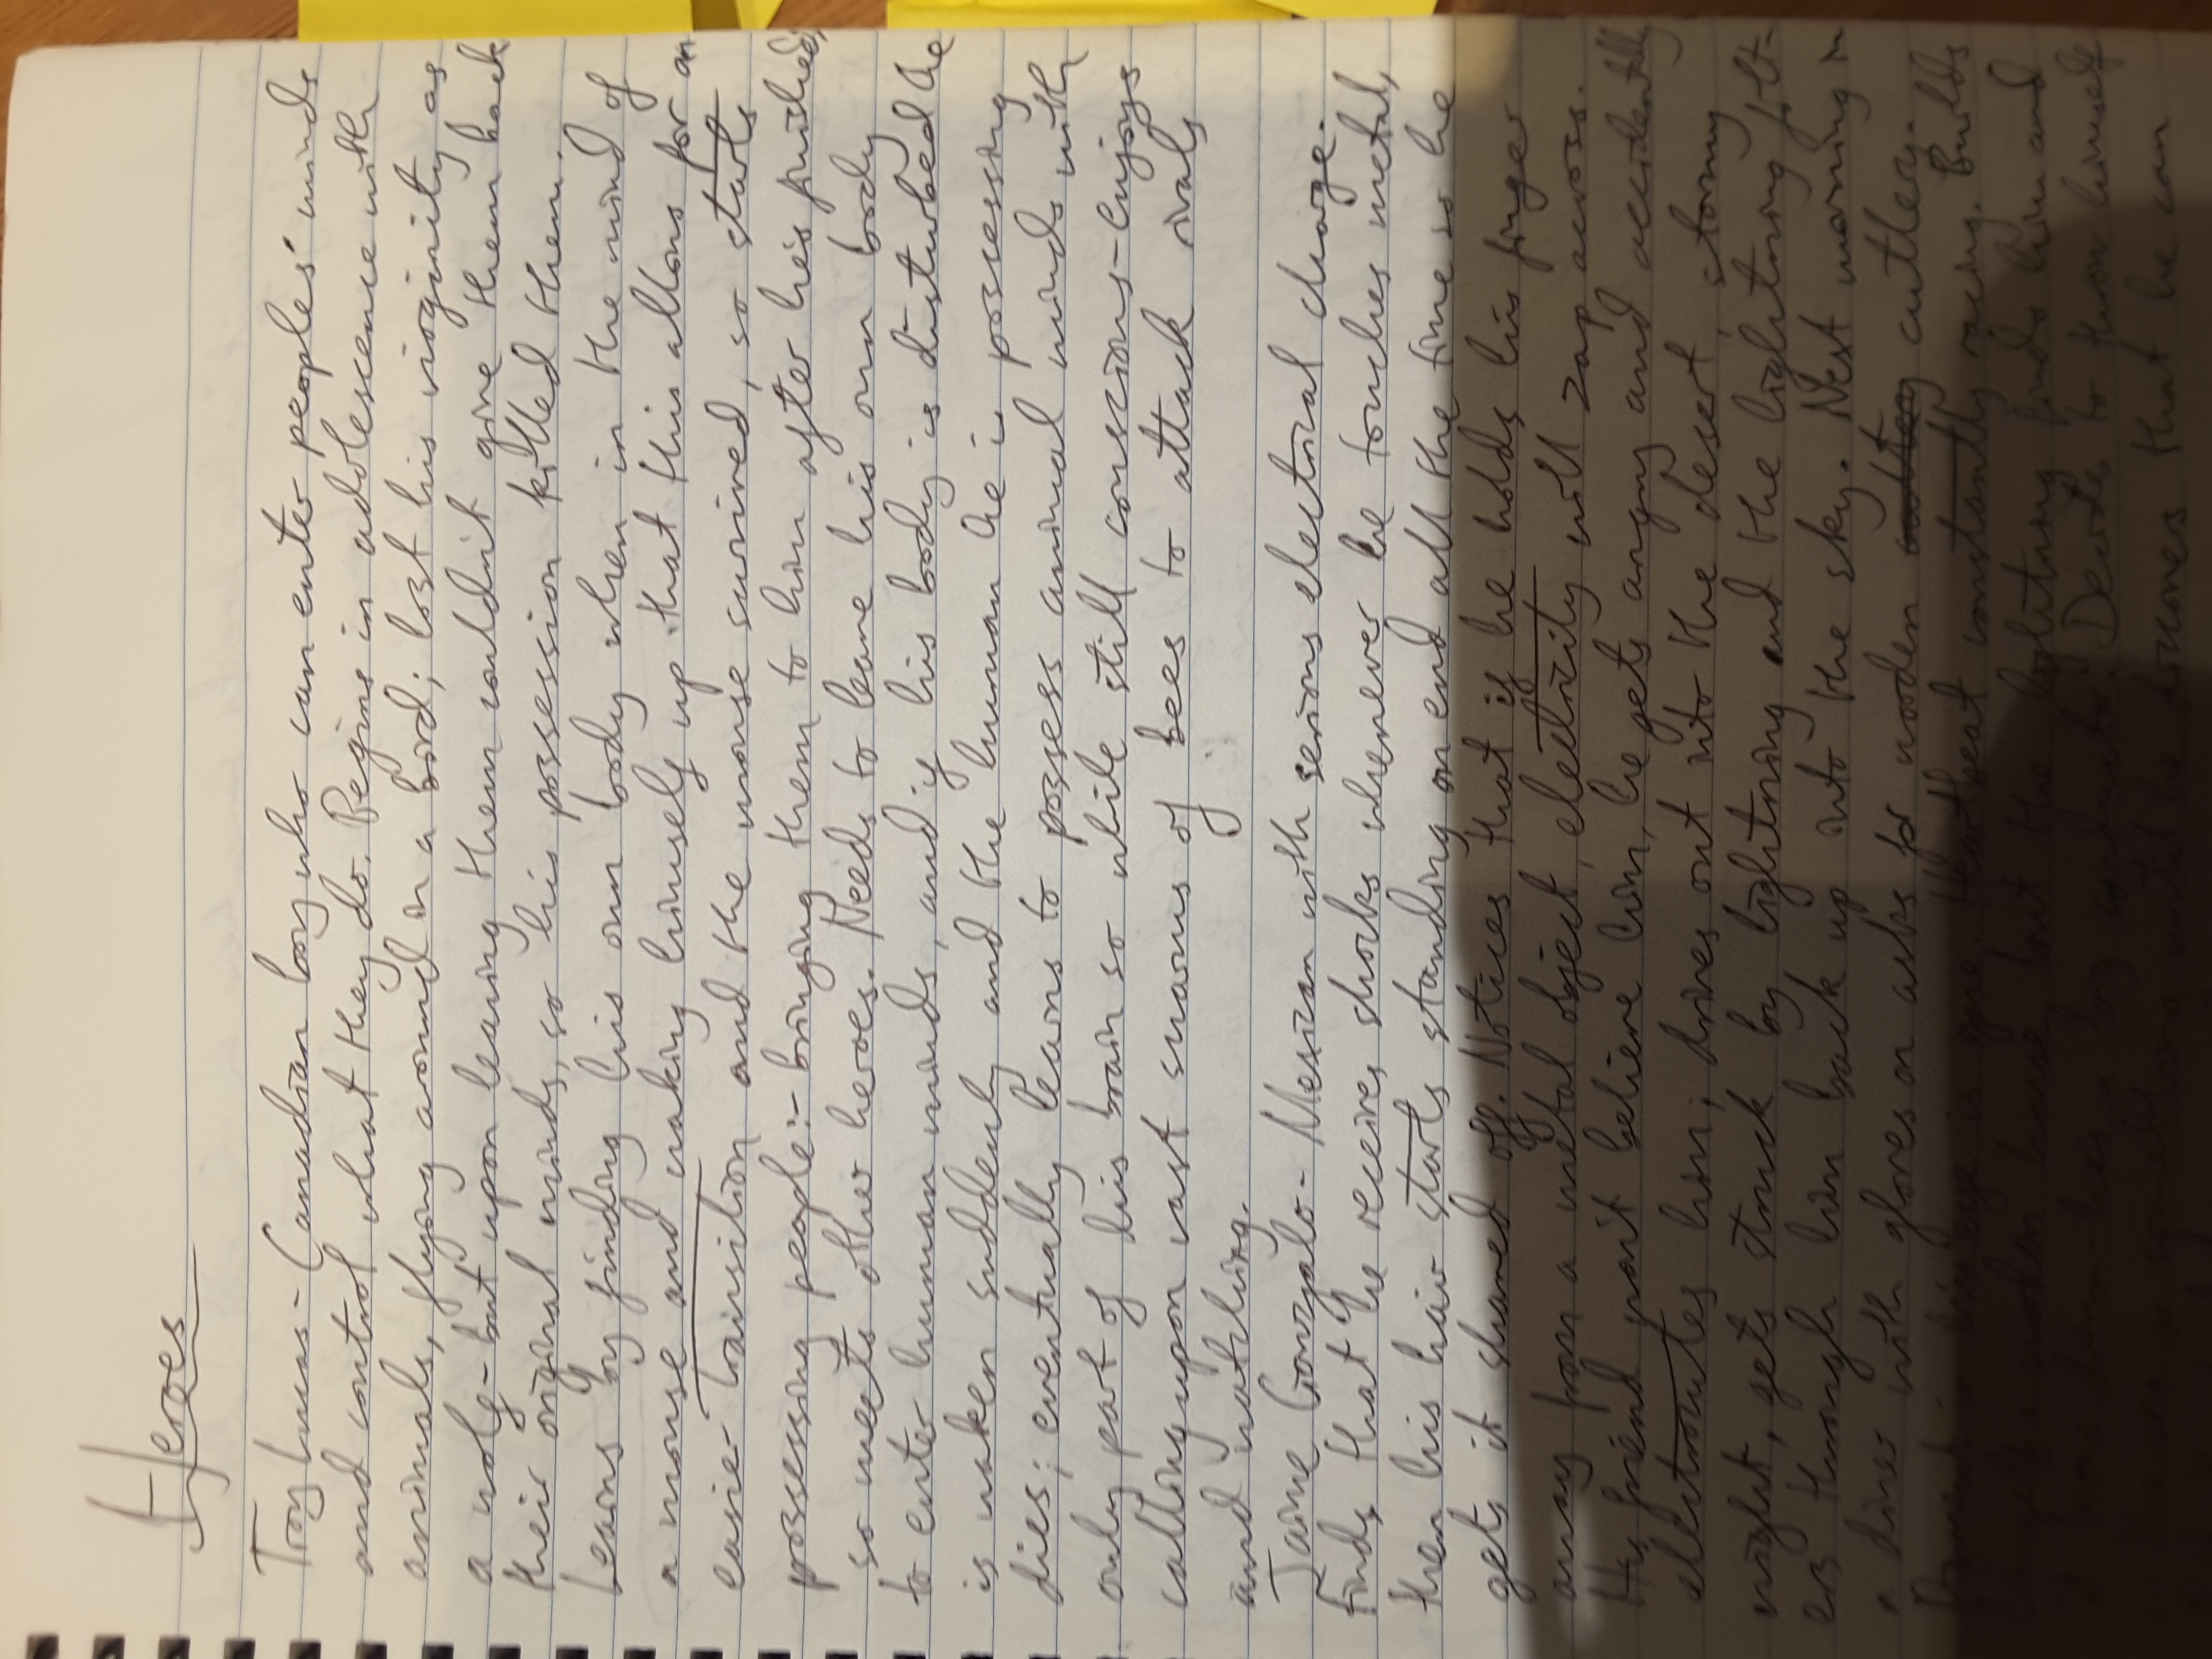 Heroes
Troy Lucas - Canadian boy who can enter peoples' minds
and control what they do. Begins in adolescence with
animals, flying around in a bird; lost his virginity as
a wolf - but upon leaving them couldn't give them back
their original minds, so his possession killed them.
Learns by finding his own body when in the mind of
a mouse and waking himself up that this allows for an
easier transition and the mouse survived, so starts
possessing people:- bringing them to him after he's finished,
so meets other heroes. Needs to leave his own body
to enter human minds, and if his body is disturbed he
is waken suddenly and the human he is possessing
dies; eventually learns to possess animal minds with
only part of his brain so while still conscious - enjoys
calling upon vast swarms of bees to attack rivals
and watching.
Jaime Gonzalo - Mexican with serious electrical charge.
Finds that he receives shocks whenever he touches metal,
then his hair starts standing on end all the time so he
gets it shaved off. Notices that if he holds his finger
away from a metal object, electricity will zap across.
His friend won't believe him, he gets angry and accidentally
electrocutes him; drives out into the desert, stormy
night, gets struck by lightning and the lightning filt-
ers through him back up into the sky. Next morning in
a diner with gloves on asks for wooden cutlery.
Pigment in his eye is gone. Heartbeat constantly racing. Builds
himself a wooden house, but the lightning finds him and
it down - he's a big conductor. Decides to throw himself
something until he discovers that he can